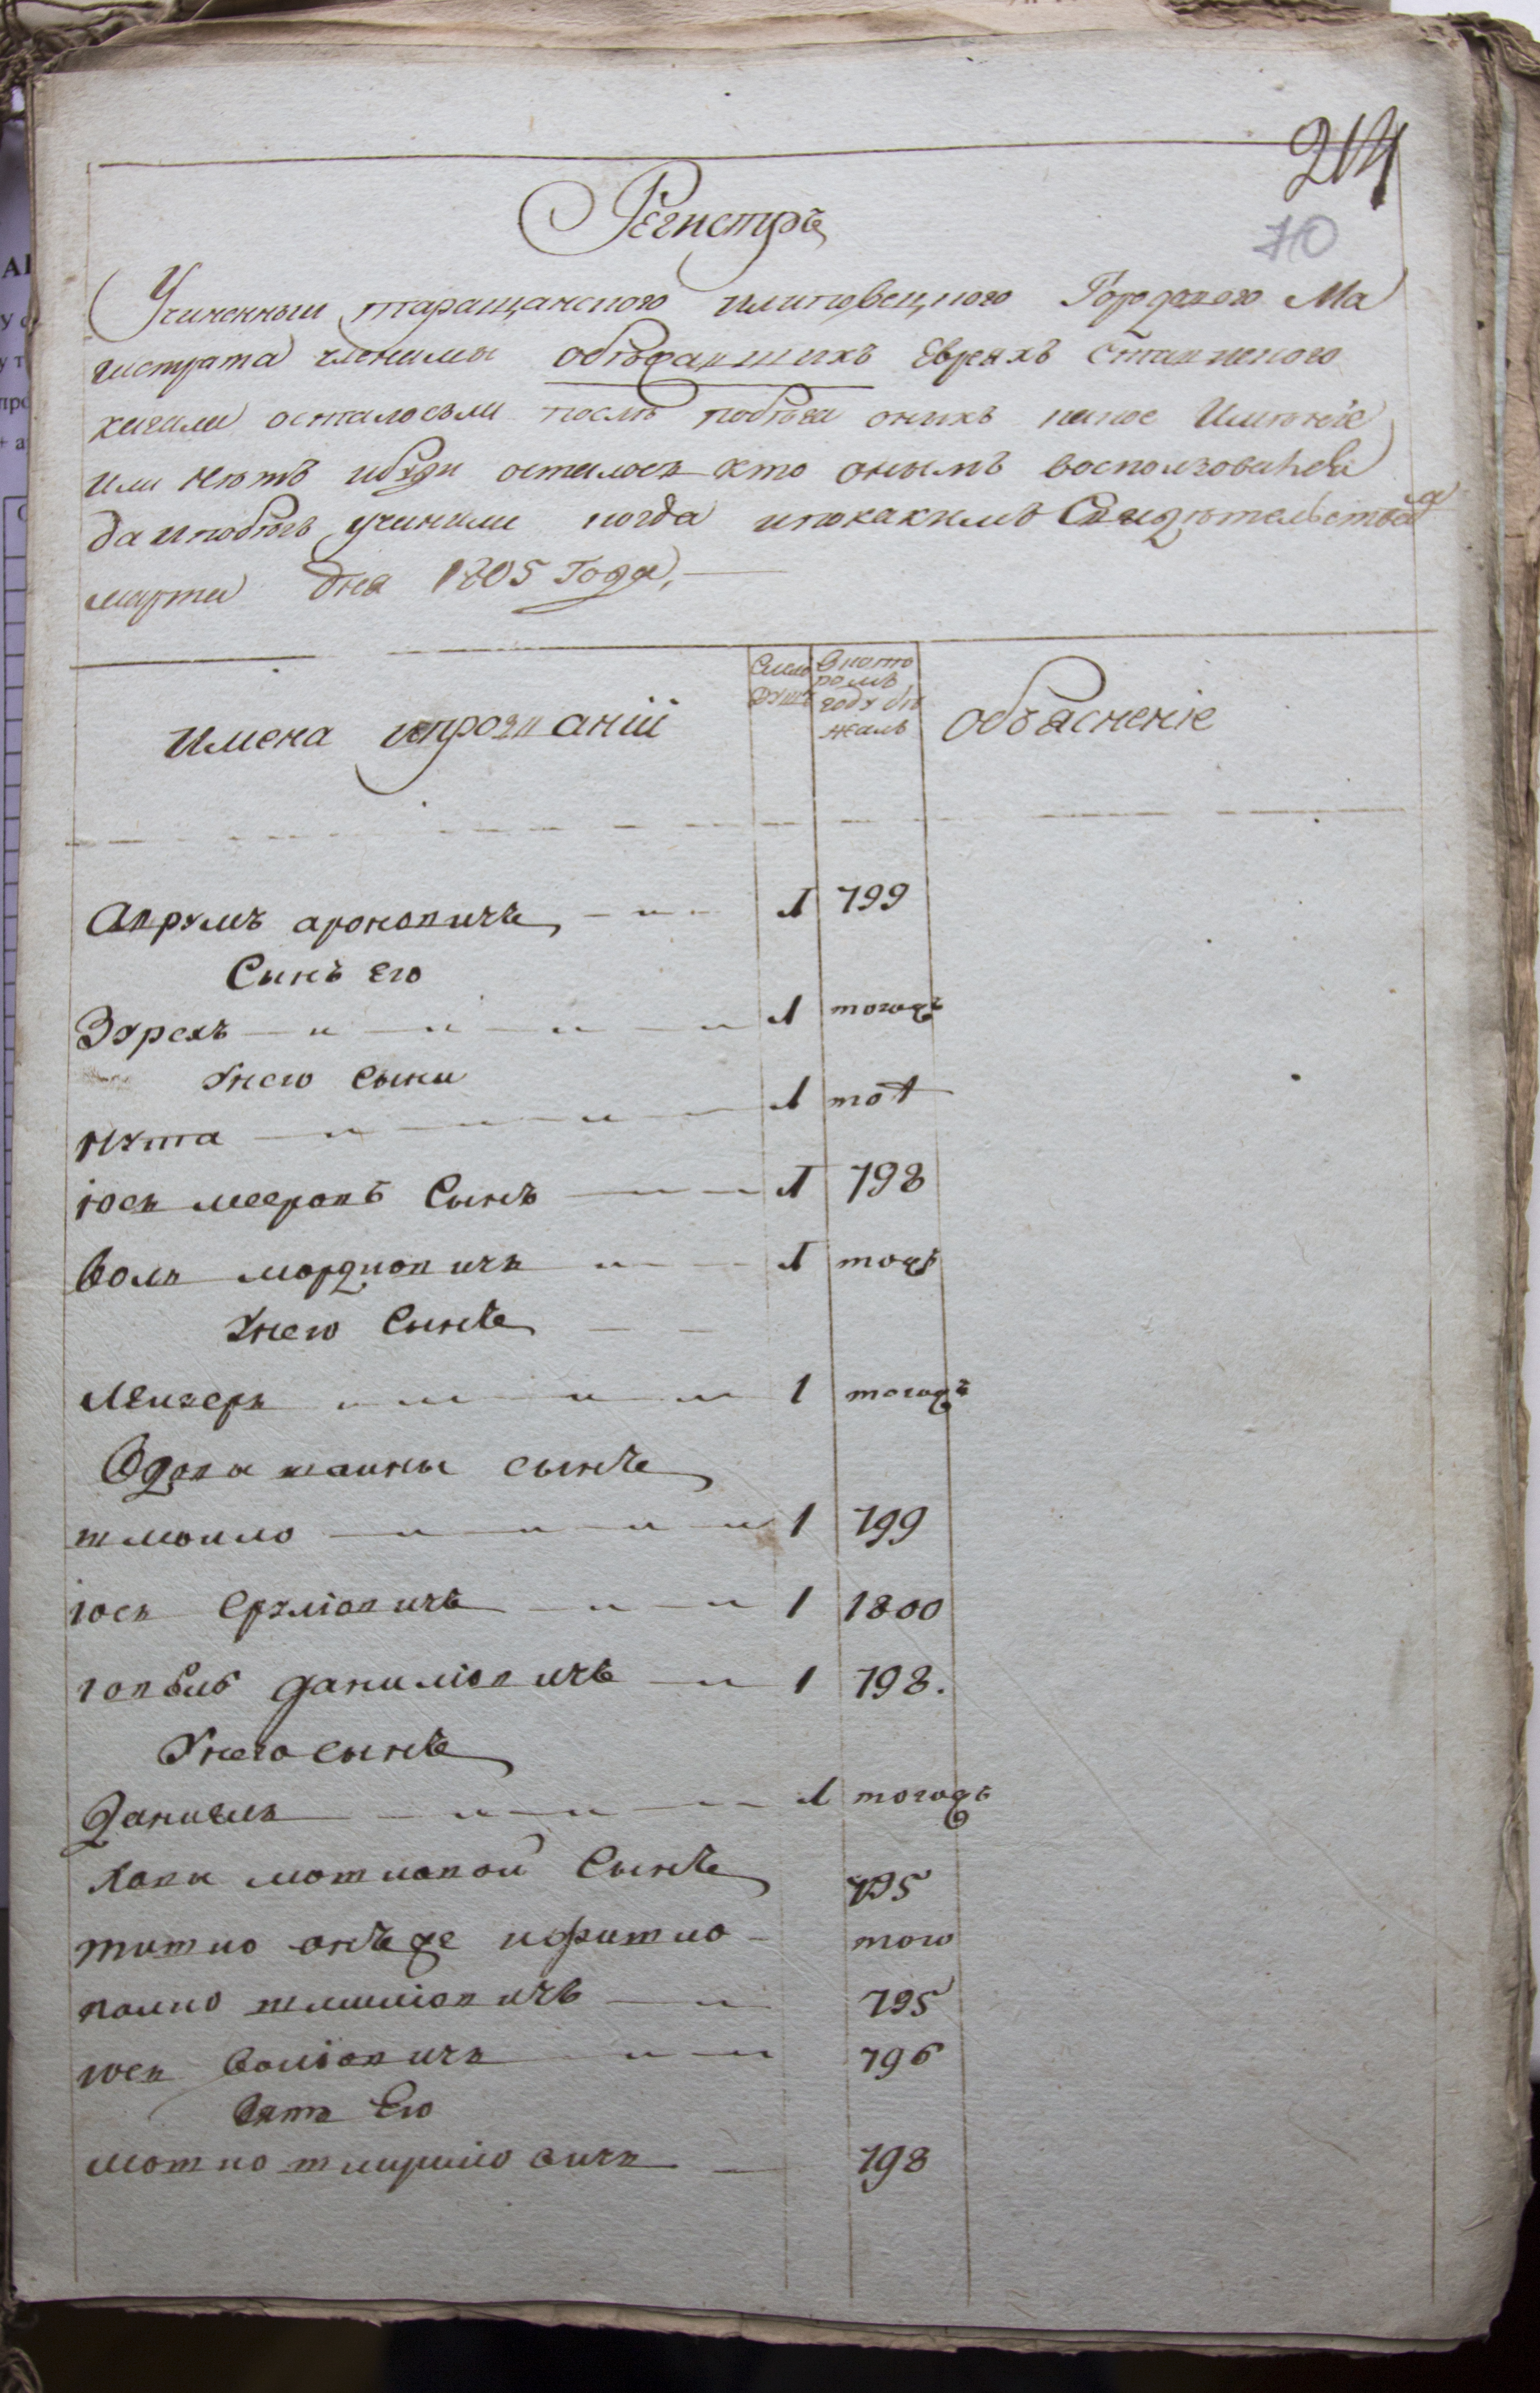 214
70
Регистръ
Учиненный таращанского илиповецкого Городоваго Ма
гистрата членамы обѣжавшихъ Евреяхъ Ставиского
кагала осталосьли послѣ побѣга оныхъ какое Имѣніе
или нѣтъ ибуди осталось кто онымъ воспользовался
да и побѣгъ учинили когда ипокакимъ Свидѣтельствамъ
марта дня 1805 Года
Имена ипрозваніи
Число душъ
Вкоторомъ году бѣжалъ
Объясненіе
Аврумъ ароновичъ 1 799
Сынъ его
Эхрехъ 1 тогодъ
Унего сынъ
Нута 1 тот
іось мееровъ Сынъ 1 798
Воль мордковичъ 1 тогдъ
Унего Сынъ
Лейзеръ 1 тогодъ
Вдовы шаины сынъ
шмойло 1 799
іось Срулiовичъ 1 1800
іоввль данилiовичъ 1 798.
Унего сынъ
Данiель 1 тогодъ
Хаии мотковой Сынъ 795
онъже ифитко того
волко шлiомовичъ 795
іось Волiовичъ 796
Зять Его
мотко 798